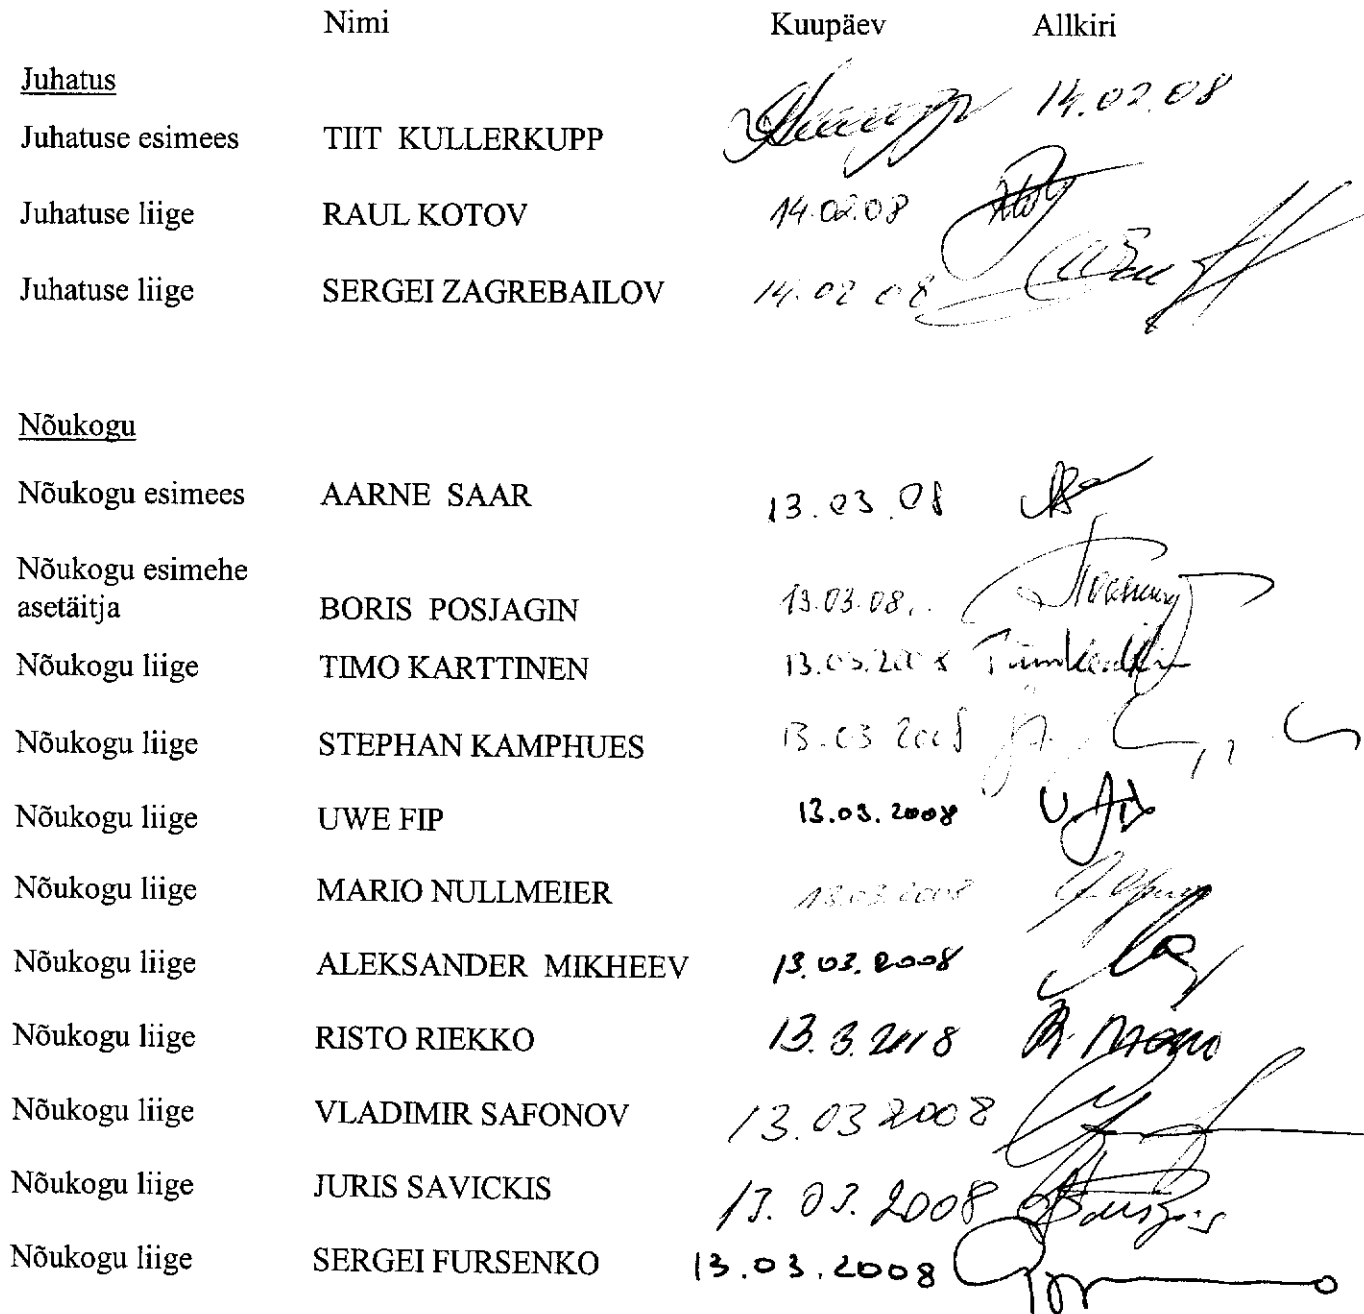 Nimi Kuupäev Allkiri
Juhatus
Juhatuse esimees TIIT KULLERKUPP 14.02.08
Juhatuse liige RAUL KOTOV 14.02.08
Juhatuse liige SERGEI ZAGREBAILOV 14.02 08
Nõukogu
Nõukogu esimees AARNE SAAR 13.03.08
Nõukogu esimehe
asetäitja BORIS POSJAGIN 13.03.08.
Nõukogu liige TIMO KARTTINEN 13.03.2008
Nõukogu liige STEPHAN KAMPHUES 13.03 2008
Nõukogu liige UWE FIP 13.03.2008
Nõukogu liige MARIO NULLMEIER 13.03.2008
Nõukogu liige ALEKSANDER MIKHEEV 13.03.2008
Nõukogu liige RISTO RIEKKO 13.3.2008
Nõukogu liige VLADIMIR SAFONOV 13.03 2008
Nõukogu liige JURIS SAVICKIS 13.03.2008
Nõukogu liige SERGEI FURSENKO 13.03.2008